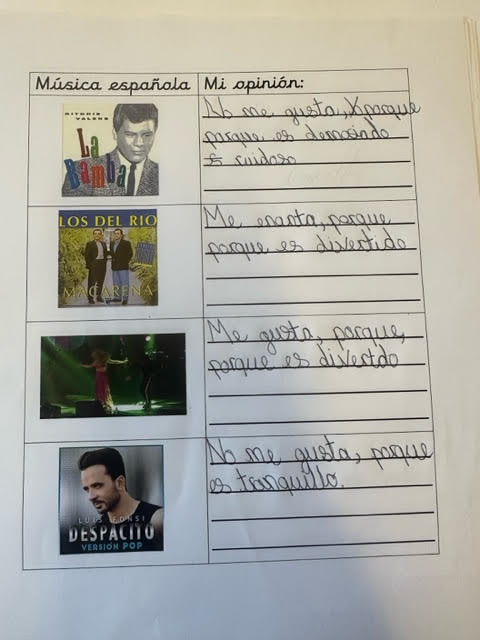 Música española
Mi opinión:
RITCHIE
VALENS
La
Bamba
No me gusta, porque
porque es demasiado
ruidoso
LOS DEL RIO
MACARENA
Me encanta, porque
porque es divertido
Me gusta, porque,
porque es divertdo
LUIS FONSI
DESPACITO
VERSIÓN POP
No me gusta, porque
es tranquillo.